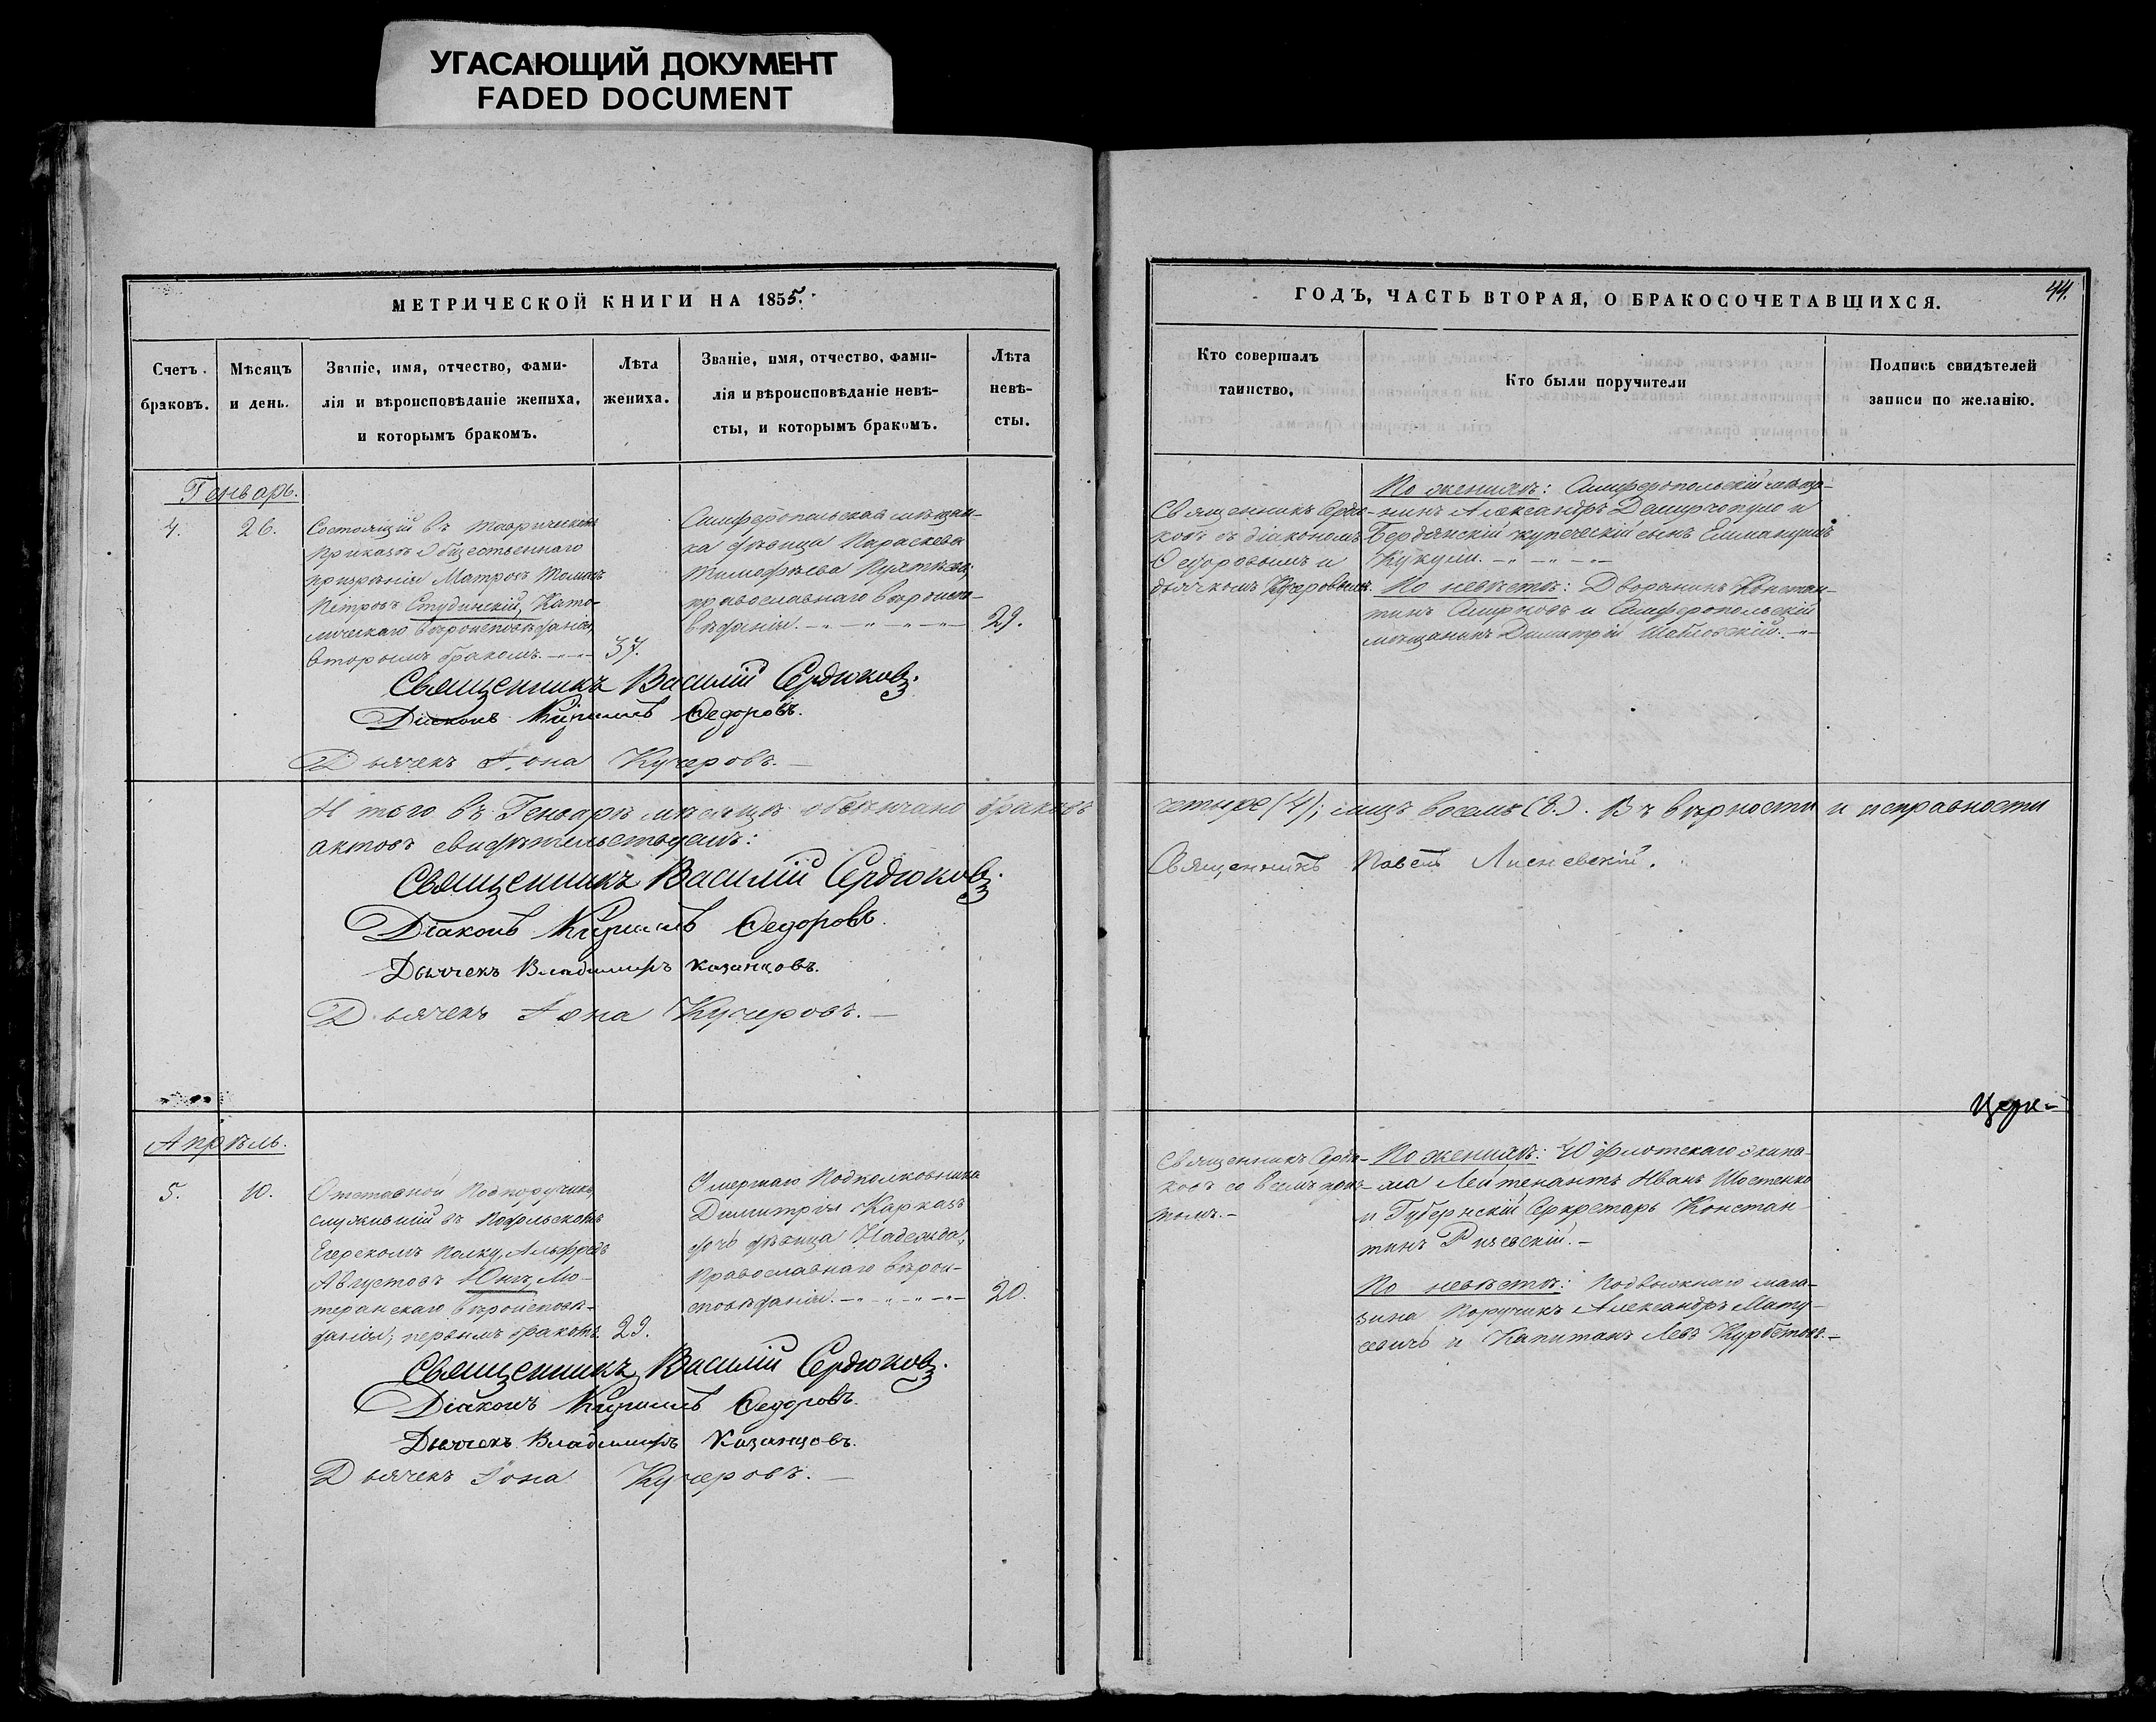 УГАСАЮЩИЙ ДОКУМЕНТ
FADED DOCUMENT
МЕТРИЧЕСКОЙ КНИГИ НА 1855.
Счетъ браковъ.
Мѣсяцъ и день.
Званіе, имя, отчество, фами-
лія и вѣроисповѣданіе жениха,
и которымъ бракомъ.
Лѣта
жениха.
Званіе, имя, отчество, фами-
лія и вѣроисповѣданіе невѣ-
сты, и которымъ бракомъ.
Лѣта
невѣ-
сты.
Генварь.
4.
26.
Состоящій въ Таврическомъ
Приказѣ Общественнаго
призрѣнія Матросъ Томасъ
Петровъ Студинскій, Като-
лическаго вѣроисповѣданія,
вторымъ бракомъ.
37.
Симферопольская мѣщан-
ка дѣвица Параскева
Тимофѣева
православнаго вѣроиспо-
вѣданія.
29.
Священникъ Василій Сердюковъ.
Діаконъ Кириллъ Федоровъ.
Дьячекъ Іона Кучеровъ.
Итого въ Генварѣ мѣсяцѣ обвѣнчано браковъ
актовъ свидѣтельствуемъ:
Священникъ Василій Сердюковъ.
Діаконъ Кириллъ Федоровъ.
Дьячекъ Владимиръ Казанцовъ.
Дьячекъ Іона Кучеровъ.
Апрѣль.
5.
10.
Отставной Подпоручикъ,
служившій въ Подольскомъ
Егерскомъ Полку, Альфредъ
Августовъ Юнгъ, Лю-
теранскаго вѣроисповѣ-
данія, первымъ бракомъ.
29.
Умершаго Подполковника
Димитрія
дочь дѣвица Надежда,
Православнаго вѣрои-
сповѣданія.
20.
Священникъ Василій Сердюковъ.
Діаконъ Кириллъ Федоровъ.
Дьячекъ Владимиръ Казанцовъ.
Дьячекъ Іона Кучеровъ.
44.
ГОДЪ, ЧАСТЬ ВТОРАЯ, О БРАКОСОЧЕТАВШИХСЯ.
Кто совершалъ
таинство.
Кто были поручители
Подпись свидѣтелей
записи по желанію.
Священникъ Сердю-
ковъ съ діакономъ
Федоровымъ и
дьячкомъ Кучеровымъ.
По женихѣ: Симферопольскій мѣща-
нинъ Александръ и
Бердянскій купеческій сынъ Еммануилъ
По невѣстѣ: Дворянинъ Констан-
тинъ Смирновъ и Симферопольскій
мѣщанинъ Димитрій
четыре (4); лицъ восемь (8.). Въ вѣрности и исправности
Священникъ Павелъ Лисневскій.
Церк-
Священникъ Сердю-
ковъ со всемъ прич-
томъ.
По женихѣ: 40 флотскаго экипа-
жа Лейтенантъ Иванъ Шостенко
и Губернскій Секретарь Констан-
тинъ
По невѣстѣ: Подвижнаго мага-
зина Поручикъ Александръ Мату-
севичъ и Капитанъ Левъ